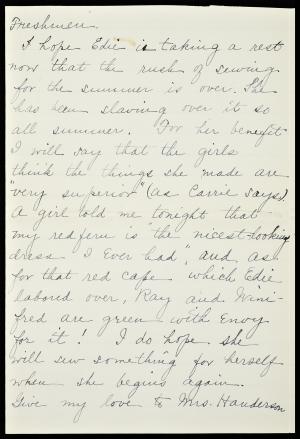 Freshmen.
I hope Edie is taking a rest
now that the rush of sewing
for the summer is over. She
has been slaving over it so
all summer. For her benefit
I will say that the girls
think the things she made are
"very superior" (as Carrie says).
A girl told me tonight that
my redfern is "the nicest-looking
dress I Ever had", and, as
for that red cape which Edie
labored over, Ray and Wini-
fred are green with Envy
for it! I do hope she
will sew something for herself
when she begins again.
Give my love to Mrs. Handerson